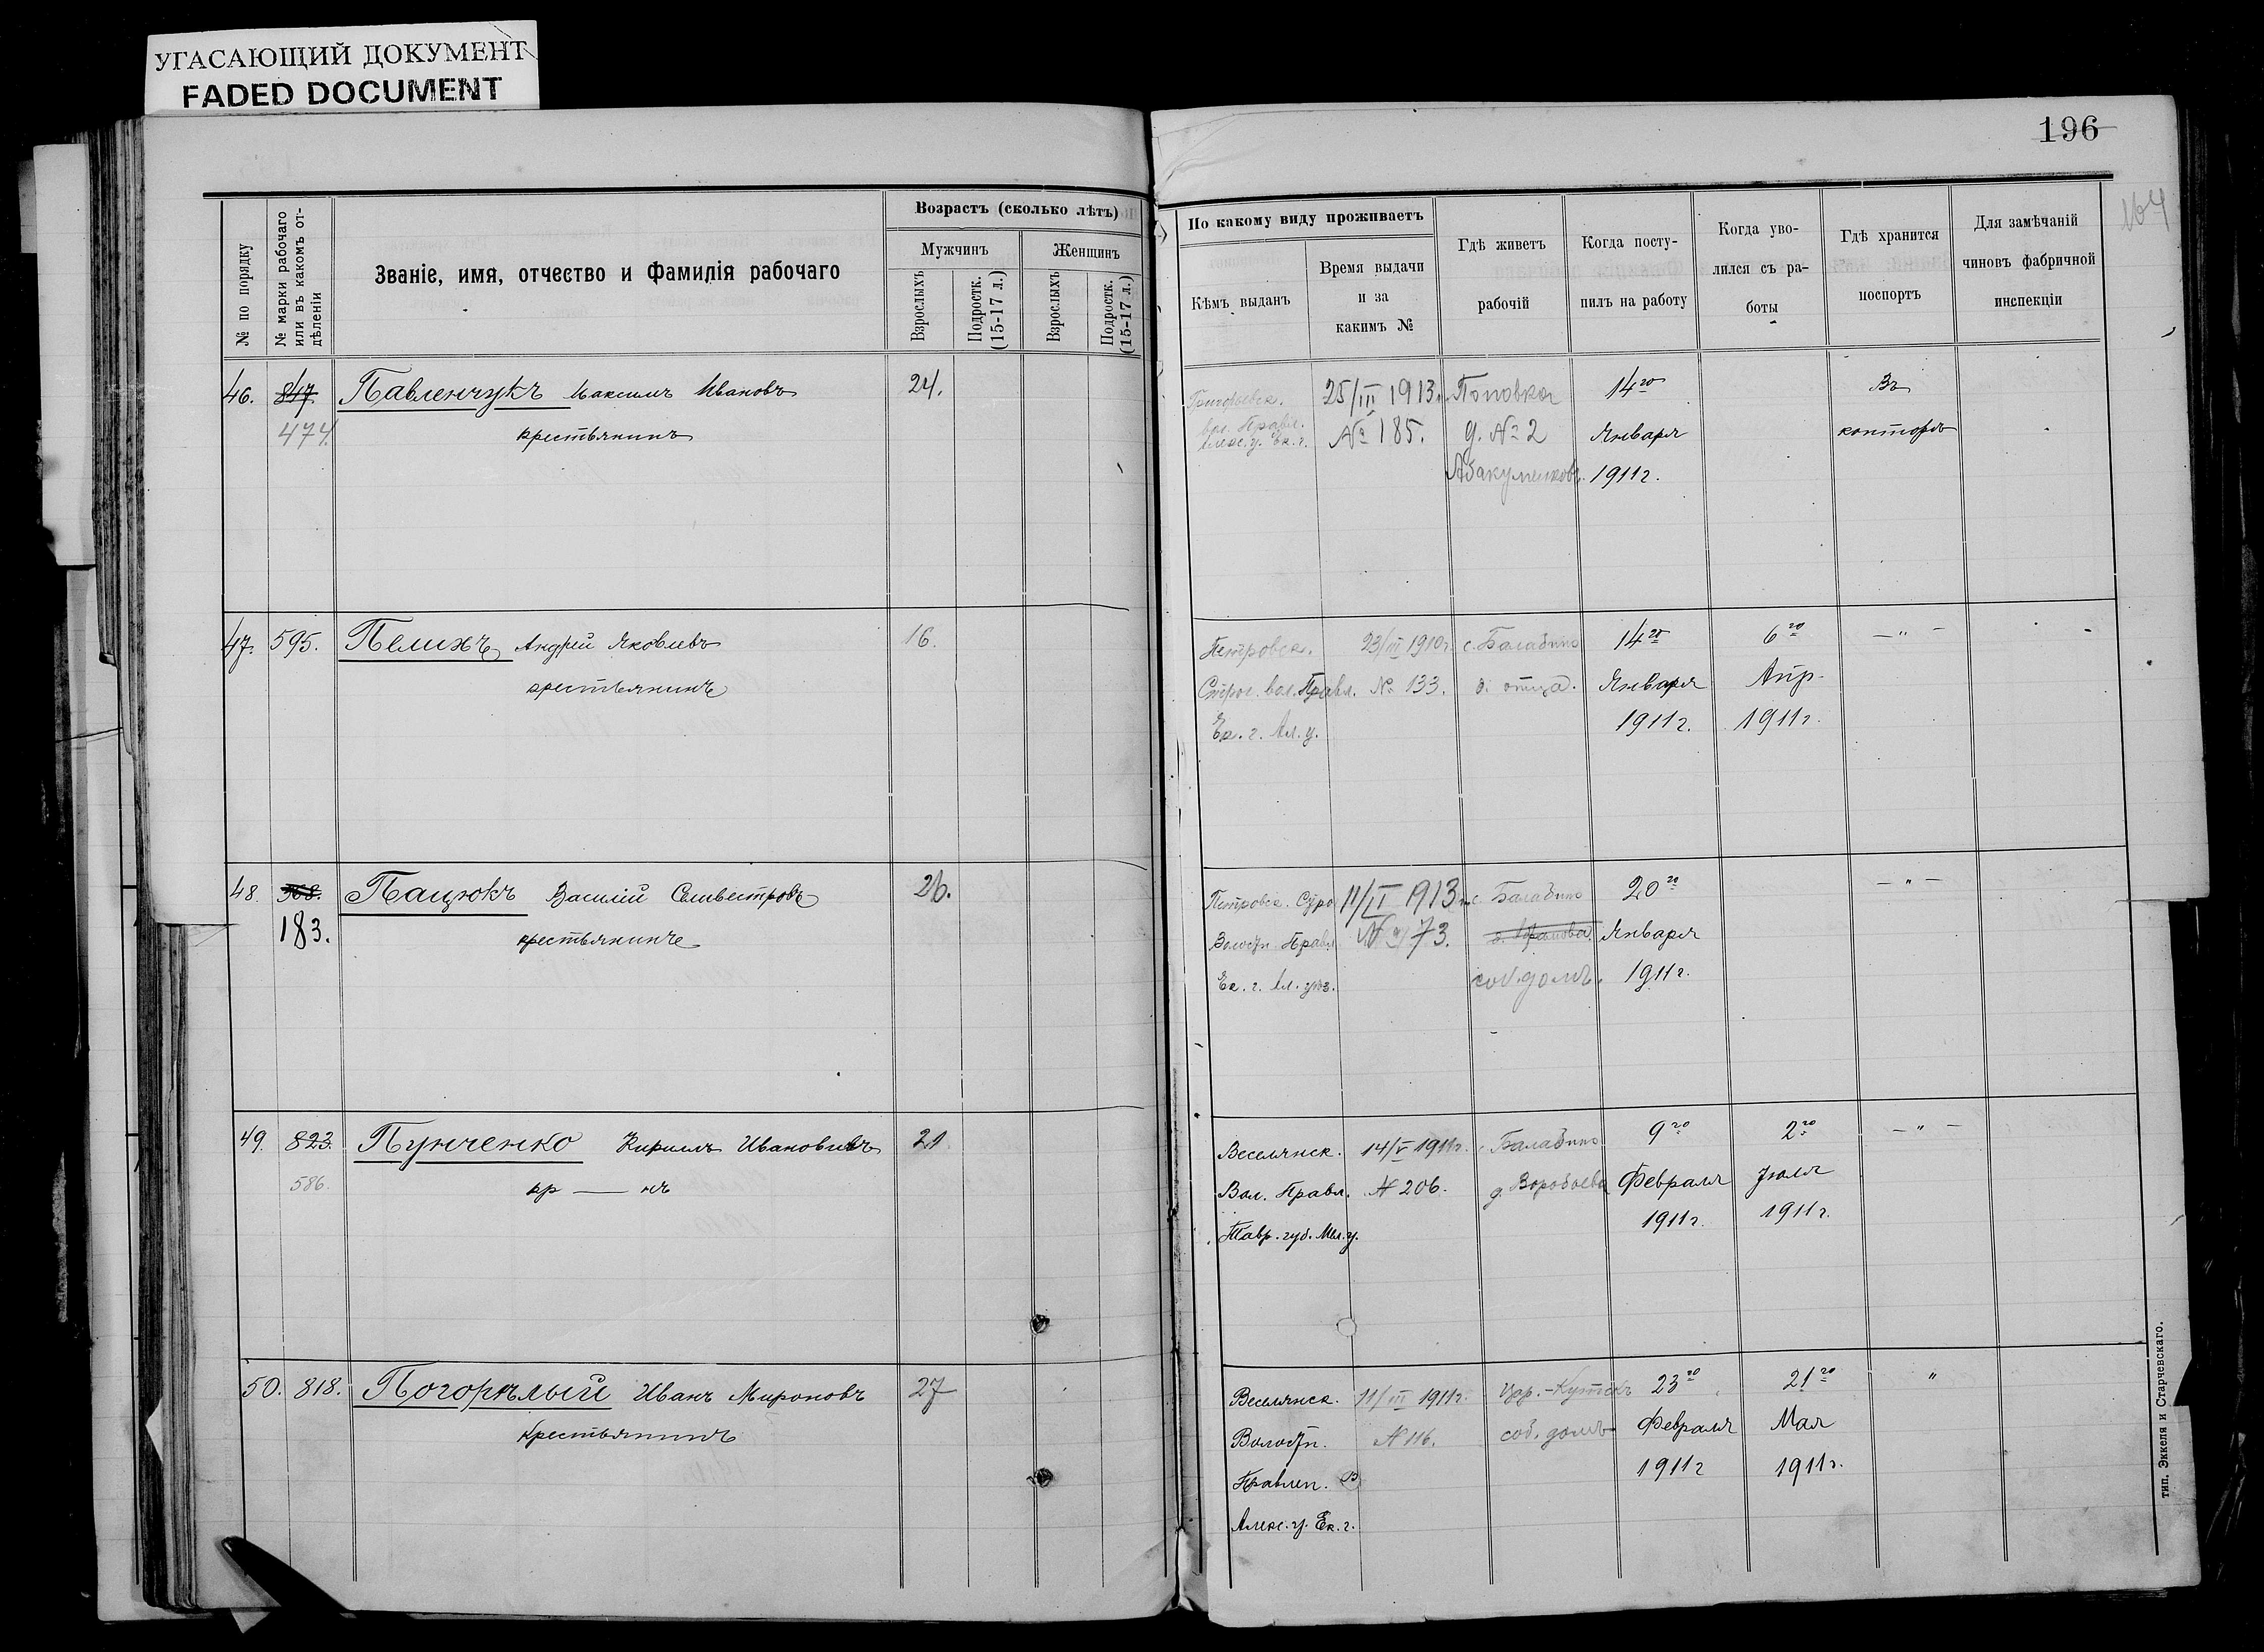 УГАСАЮЩИЙ ДОКУМЕНТ
FADED DOCUMENT
196
164
№ по порядку
№ марки рабочаго или въ какомъ отдѣленіи
Званіе, имя, отчество и фамилія рабочаго
Возрастъ (сколько лѣтъ)
Мужчинъ
Женщинъ
Взрослыхъ
Подростк. (15-17 л.)
Взрослыхъ
Подростк. (15-17 л.)
По какому виду проживаетъ
Кѣмъ выданъ
Время выдачи и за какимъ №
Гдѣ живетъ рабочій
Когда поступилъ на работу
Когда уволился съ работы
Гдѣ хранится поспортъ
Для замѣчаній чиновъ фабричной инспекціи
46. 847. Павленчукъ Максимъ Ивановъ 24. Григорьевск. 25/III 1913 г. Поповка 14го Въ
474. крестьянинъ вол. Правл. № 185. д. № 2 Января конторѣ
Алекс. у. Ек. г. 1911 г.
47. 595. Пелихъ Андрей Яковлевъ 16. Петровск. 23/III 1910 г. с. Балабино 14го 6го — " —
крестьянинъ вол. Правл. № 133. д. отца. Января Апр.
Ек. г. Ал. у. 1911 г. 1911 г.
48. Пацюкъ Василій Селивестровъ 26. Петровск. 1913 с. Балабино 20го — " —
183. крестьянинъ Волостн. Правл. № 173. Января
Ек. г. Ал. уѣз. соб. домъ. 1911 г.
49. 823. Пунченко Кириллъ Ивановичъ 21 Веселянск. 14/V 1911 г. с. Балабино 9го 2го — " —
586. кр — нъ Вол. Правл. № 206. д. Воробьева Февраля Іюля
Тавр. губ. Мел. у. 1911 г. 1911 г.
50. 818. Погорѣлый Иванъ Мироновъ 27 Веселянск. 11/III 1911 г. 23го 21го "
крестьянинъ Волостн. № 116. соб. домъ Февраля Мая
Правлен. 1911 г. 1911 г.
Алекс. у. Ек. г.
тип. Эккеля и Старчевскаго.